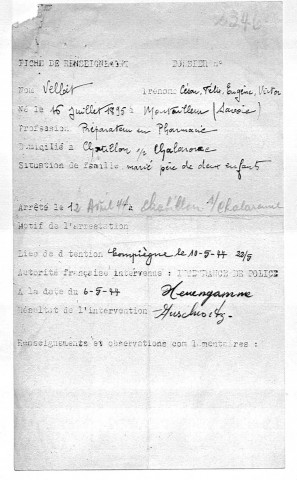 2246
FICHE DE RENSEIGNEMENT DOSSIER N°
Nom Vellet Prénoms César, Félix, Eugène, Victor
Né le 16 Juillet 1895 à Montailleur (Savoie)
Profession Préparateur en Pharmacie
Domicilié à Chatillon s/ Chalaronne
Situation de famille marié père de deux enfants
Arrêté le 12 Avril 44 à Chatillon s/Chalaronne
Motif de l'arrestation
Lieu de détention Compiègne le 10-5-44
Autorité française intervenue : L'INTENDANCE DE POLICE
A la date du 6-5-44 Neuengamme
Résultat de l'intervention Auschwitz
Renseignements et observations complémentaires :